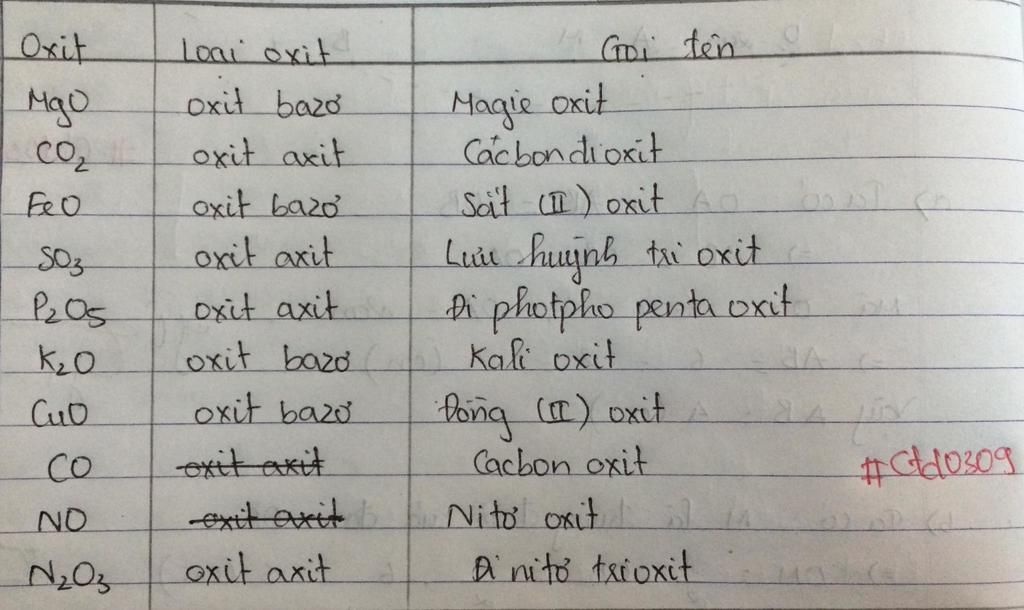 Oxit Loại oxit Gọi tên
MgO oxit bazơ Magie oxit
CO₂ oxit axit Cacbon đioxit
FeO oxit bazơ Sắt (II) oxit
SO₃ oxit axit Lưu huỳnh tri oxit
P₂O₅ oxit axit Đi photpho penta oxit
K₂O oxit bazơ Kali oxit
CuO oxit bazơ Đồng (II) oxit
CO oxit axit Cacbon oxit #Ctd0309
NO oxit axit Nitơ oxit
N₂O₃ oxit axit Đi nitơ trioxit